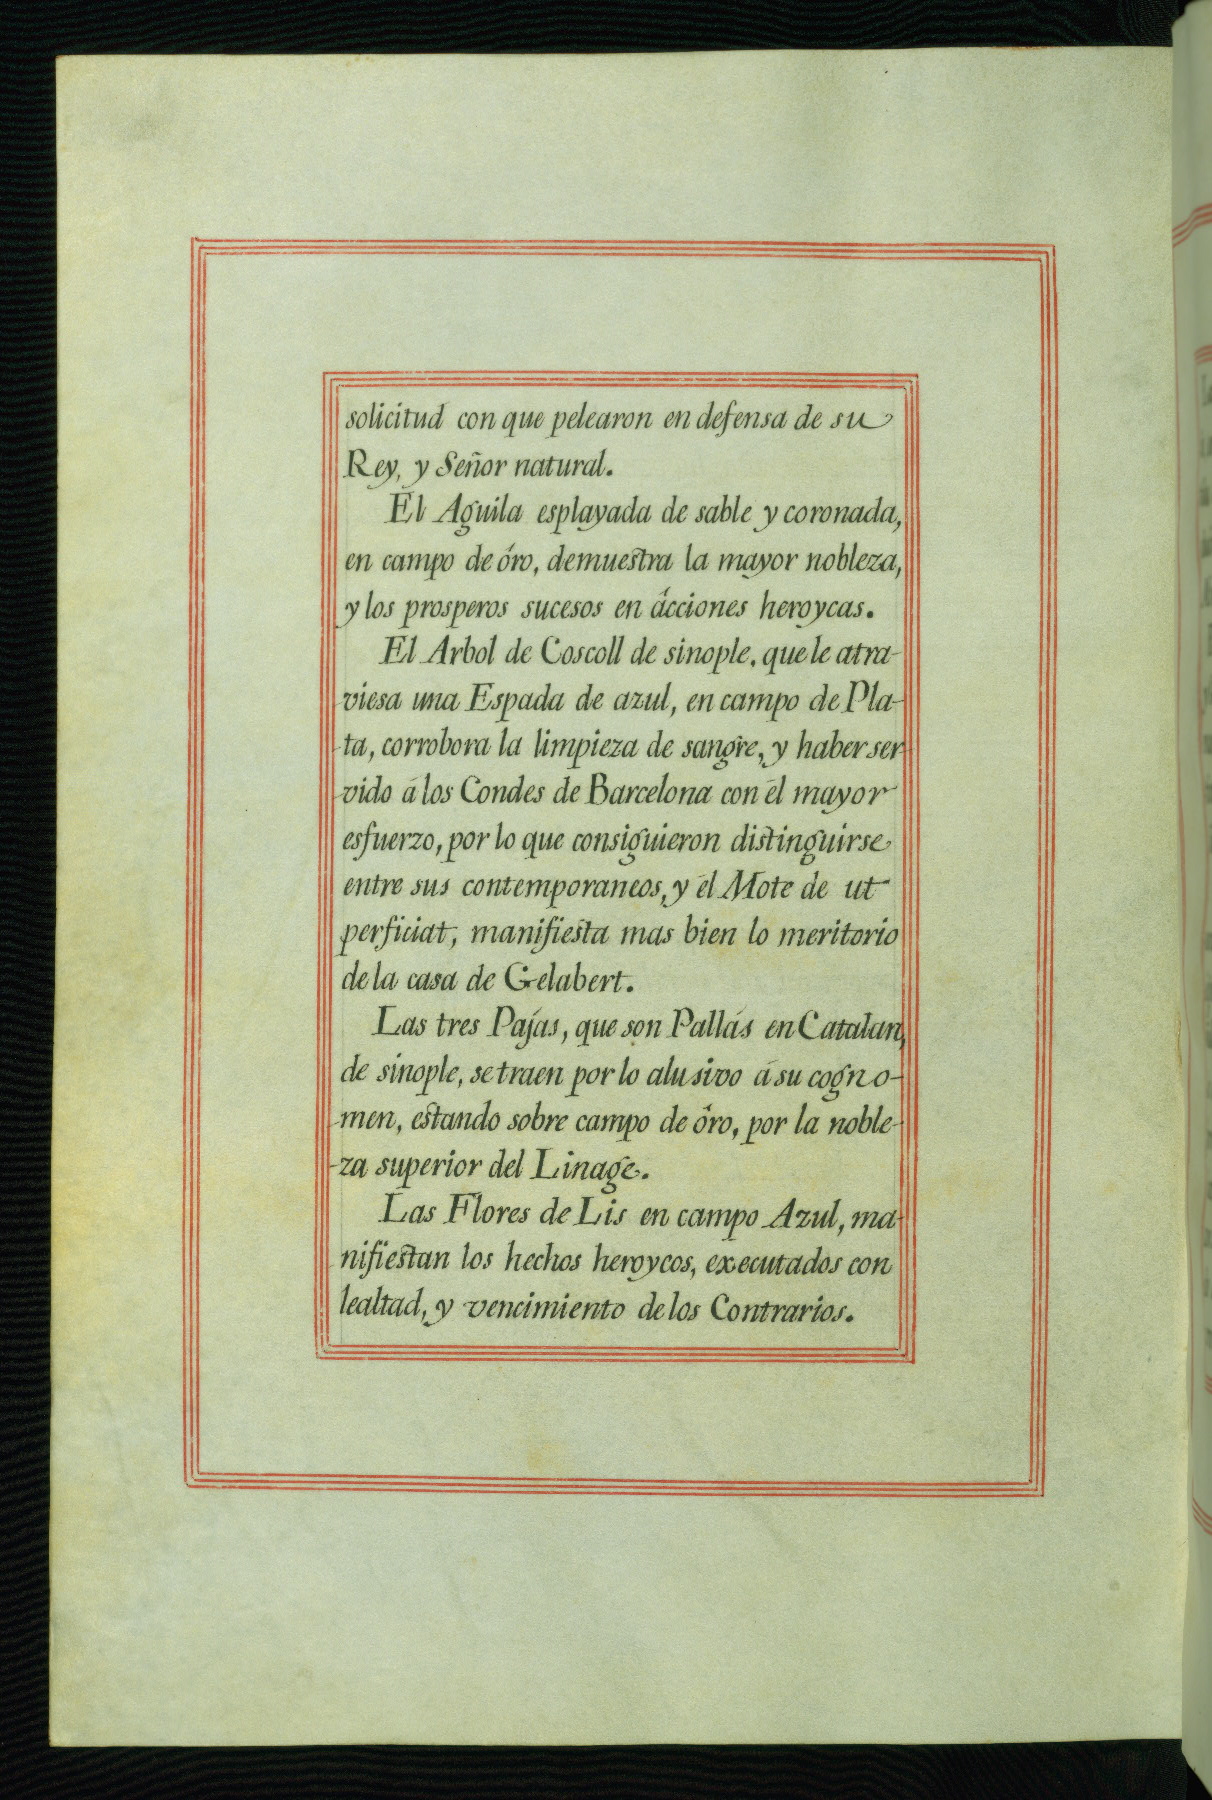 solicitud con que pelearon en defensa de su
Rey, y Señor natural.
El Aguila esplayada de sable y coronada,
en campo de óro, demuestra la mayor nobleza,
y los prosperos sucesos en ácciones heroycas.
El Arbol de Coscoll de sinople, que le atra-
viesa una Espada de azul, en campo de Pla-
ta, corrobora la limpieza de sangre, y haber ser-
vido á los Condes de Barcelona con él mayor
esfuerzo, por lo que consiguieron distinguirse
entre sus contemporaneos, y él Mote de ut
perficiat, manifiesta mas bien lo meritorio
de la casa de Gelabert.
Las tres Pajas, que son Pallás en Catalan,
de sinople, se traen por lo alusivo á su cogno-
men, estando sobre campo de óro, por la noble-
za superior del Linage.
Las Flores de Lis en campo Azul, ma-
nifiestan los hechos heroycos, executados con
lealtad, y vencimiento de los Contrarios.